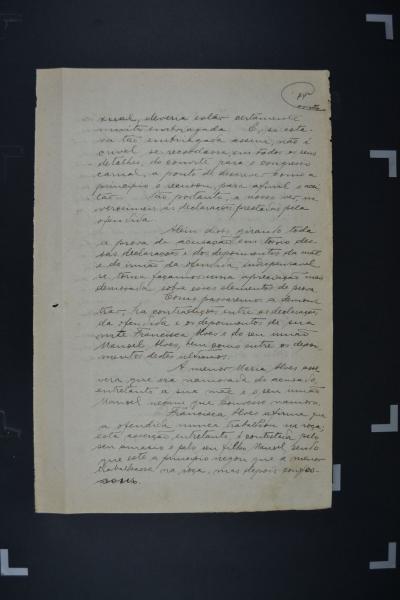 xual, deveria estar certamente
muito embriagada. E, se esta-
va tão embriagada assim, não é
crivel se recordasse, em todos os seus
detalhes, do convite para o congresso
carnal, a ponto de descrever como a
principio o recusou, para afinal o acei-
tar. São portanto, a nosso ver, in-
verosimeis as declarações prestadas pela
ofendida.
Alem disso girando toda
a prova da acusação em torno des-
sas declarações e dos depoimentos da mãe
e do irmão da ofendida, indispensavel
se torna façamos uma apreciação mais
demorada sobre esses elementos de prova.
Como passaremos a demons-
trar, ha contradições entre as declarações
da ofendida e os depoimentos de sua
mãe Francisca Alves e do seu irmão
Manoel Alves, bem como entre os depoi-
mentos destes ultimos.
A menor Maria Alves asse-
vera que era namorada do acusado,
entretanto a sua mãe e o seu irmão
Manoel negam que houvesse namoro.
Francisca Alves afirma que
a ofendida nunca trabalhou na roça;
esta asserção, entretanto, é contestada pelo
seu amasio e pelo seu filho Manoel, sendo
que este a principio negou que a menor
trabalhasse na roça, mas depois confes-
sou.